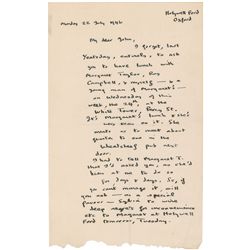 Holywell Ford
Oxford
Monday 22 July 1946
My dear John,
I forgot, last
Yesterday, entirely, to ask
you to have lunch with
Margaret Taylor, Roy
Campbell, & myself — & a
young man of Margaret's —
on Wednesday of this
week, the 24th, at the
White Tower, Percy St.
It's Margaret's lunch & she's
very keen on it. She
wants us to meet about
quarter to one in the
Wheatsheaf pub next
door.
I had to tell Margaret T.
that I'd asked you, or she'd
been at me to do so
for days & days. So, if
you can't manage it, will
you not — as a special
favour —
deep regrets for
to Margaret at Holywell
Ford tomorrow, Tuesday.